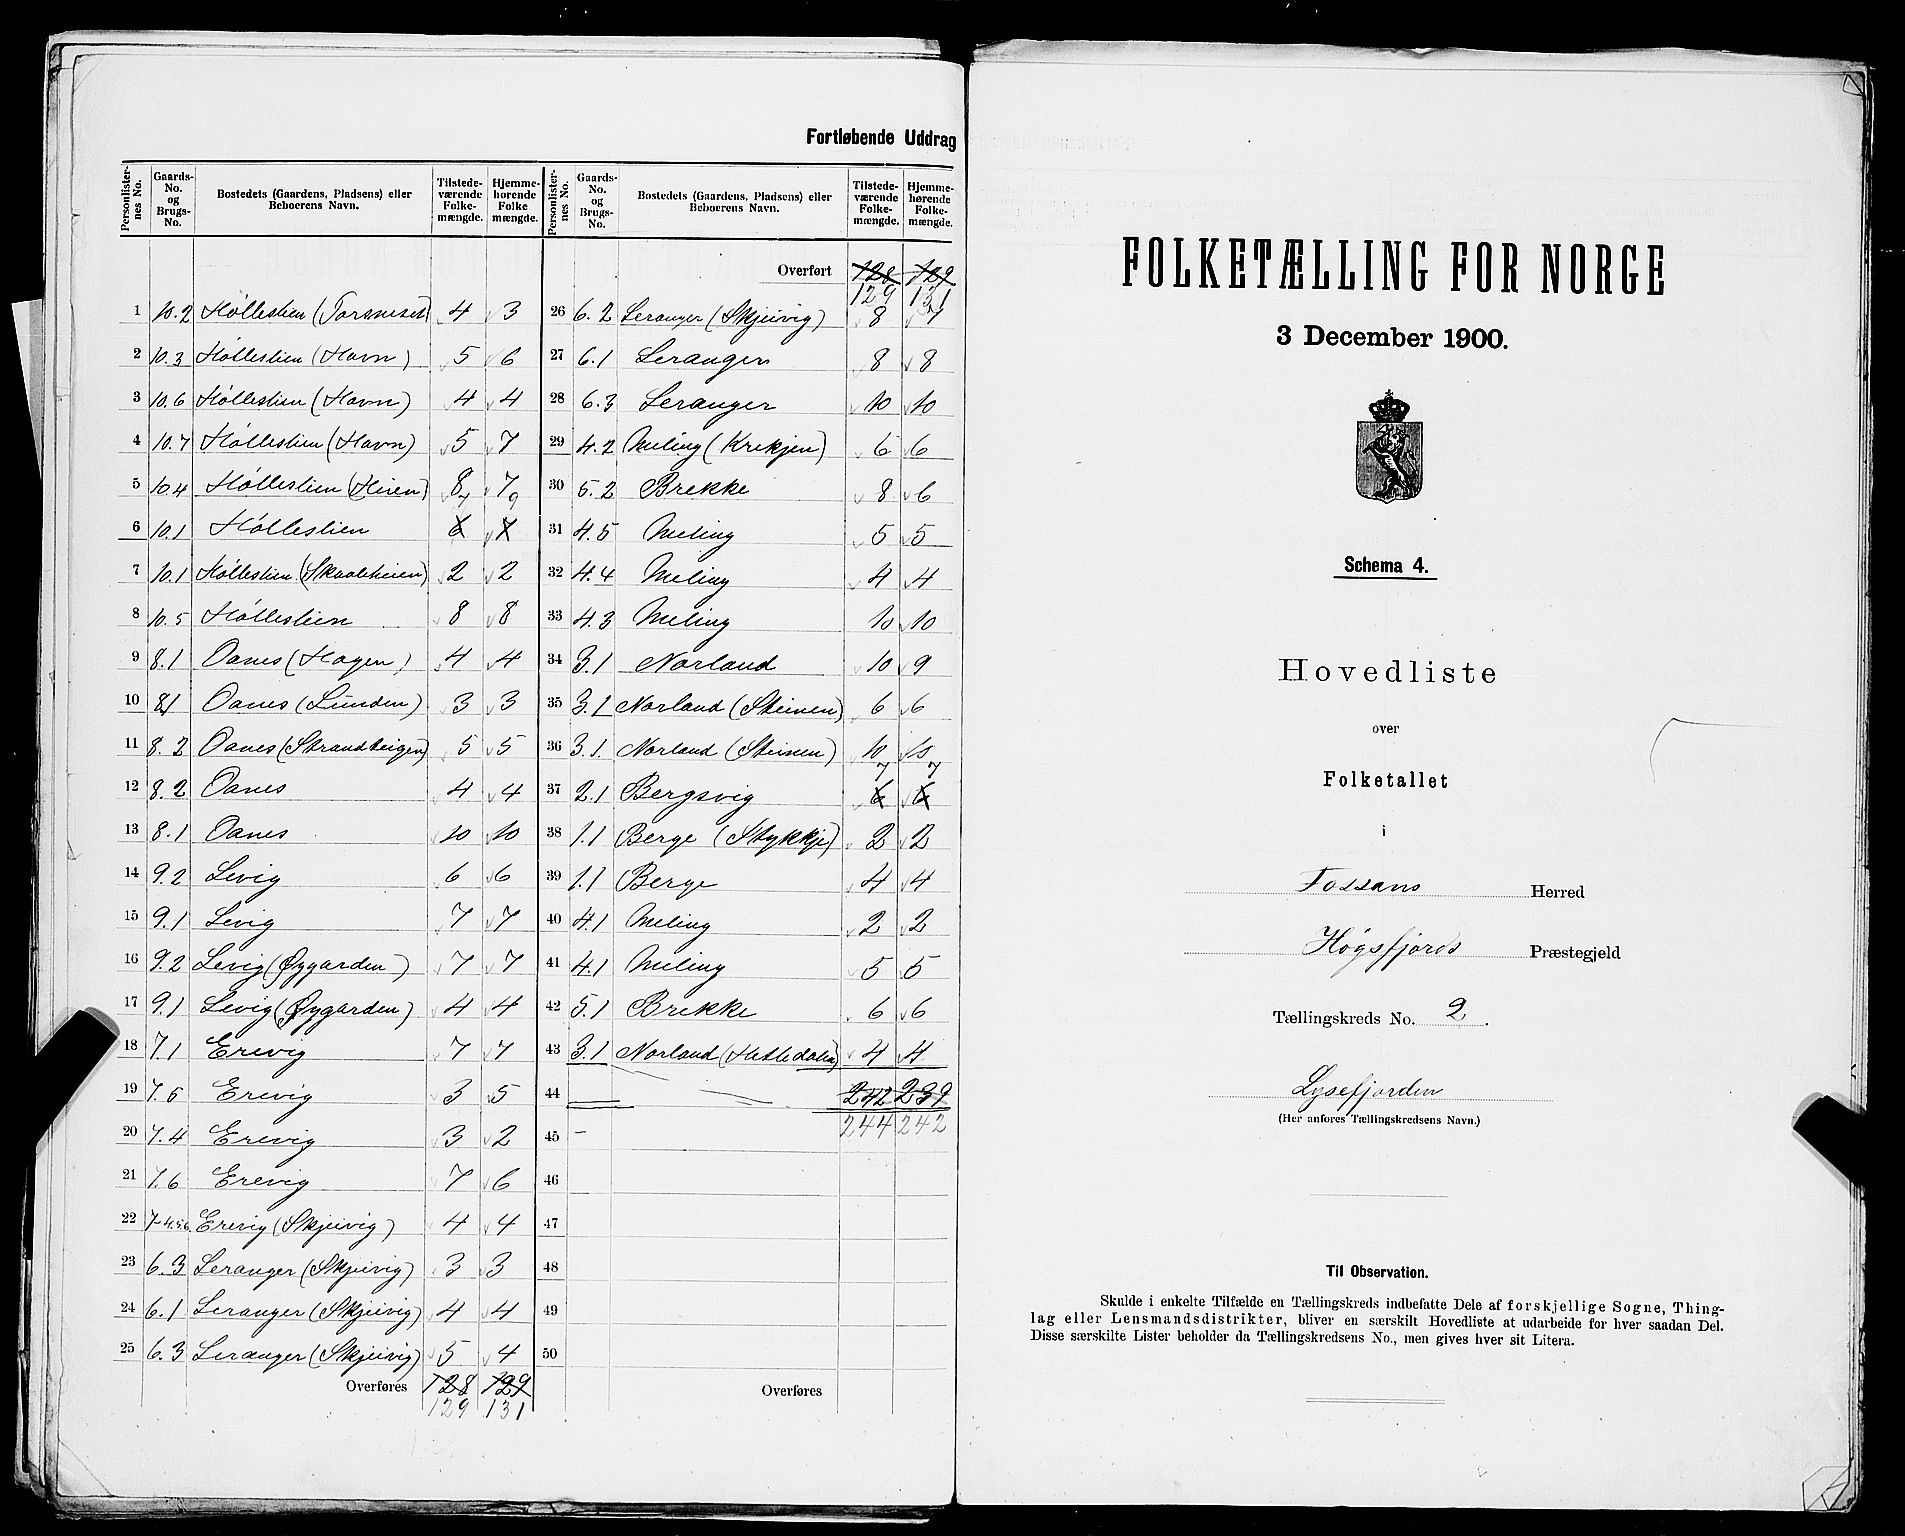 Fortløbende Uddrag
Personlisternes No. | Gaards-No. og Brugs-No. | Bostedets (Gaardens, Pladsens) eller Beboerens Navn. | Tilstedeværende Folkemængde. | Hjemmehørende Folkemængde. | Personlisternes No. | Gaards-No. og Brugs-No. | Bostedets (Gaardens, Pladsens) eller Beboerens Navn. | Tilstedeværende Folkemængde. | Hjemmehørende Folkemængde.
Overført 128 129
129 131
1 10.2 Hølleslien (Torsneset) 4 3
2 10.3 Hølleslien (Havn) 5 6
3 10.6 Hølleslien (Havn) 4 4
4 10.7 Hølleslien (Havn) 5 7
5 10.4 Hølleslien (Heien) 8 7
6 10.1 Hølleslien 6 7 7 9
7 10.1 Hølleslien (Skaaleheien) 2 2
8 10.5 Hølleslien 8 8
9 8.1 Oanes (Hagen) 4 4
10 8.1 Oanes (Lunden) 3 3
11 8.2 Oanes (Strandteigen) 5 5
12 8.2 Oanes 4 4
13 8.1 Oanes 10 10
14 9.2 Levig 6 6
15 9.1 Levig 7 7
16 9.2 Levig (Øygarden) 7 7
17 9.1 Levig (Øygarden) 4 4
18 7.1 Erevig 7 7
19 7.5 Erevig 3 5
20 7.4 Erevig 3 2
21 7.6 Erevig 7 6
22 7-4.5.6 Erevig (Skjeivig) 4 4
23 6.3 Leranger (Skjeivig) 3 3
24 6.1 Leranger (Skjeivig) 4 4
25 6.3 Leranger (Skjeivig) 5 4
Overføres 128 129
129 131
26 6.2 Leranger (Skjeivig) 8 7
27 6.1 Leranger 8 8
28 6.3 Leranger 10 10
29 4.2 Meling (Krekjen) 6 6
30 5.2 Brekke 8 6
31 4.5 Meling 5 5
32 4.4 Meling 4 4
33 4.3 Meling 10 10
34 3.1 Norland 10 9
35 3.1 Norland (Steinen) 6 6
36 3.1 Norland (Steinen) 10 10
37 2.1 Bergsvig 6 7 6 7
38 1.1 Berge (Stykkje) 2 2
39 1.1 Berge 4 4
40 4.1 Meling 2 2
41 4.1 Meling 5 5
42 5.1 Brekke 6 6
43 3.1 Norland (Hetledalen) 4 4
44 242 239
45 244 242
46
47
48
49
50
Overføres
FOLKETÆLLING FOR NORGE
3 December 1900.
Schema 4.
Hovedliste
over
Folketallet
i
Fossans Herred
Høgsfjords Præstegjeld
Tællingskreds No. 2.
Lysefjorden
(Her anføres Tællingskredsens Navn.)
Til Observation.
Skulde i enkelte Tilfælde en Tællingskreds indbefatte Dele af forskjellige Sogne, Thing-
lag eller Lensmandsdistrikter, bliver en særskilt Hovedliste at udarbeide for hver saadan Del.
Disse særskilte Lister beholder da Tællingskredsens No., men gives hver sit Litera.